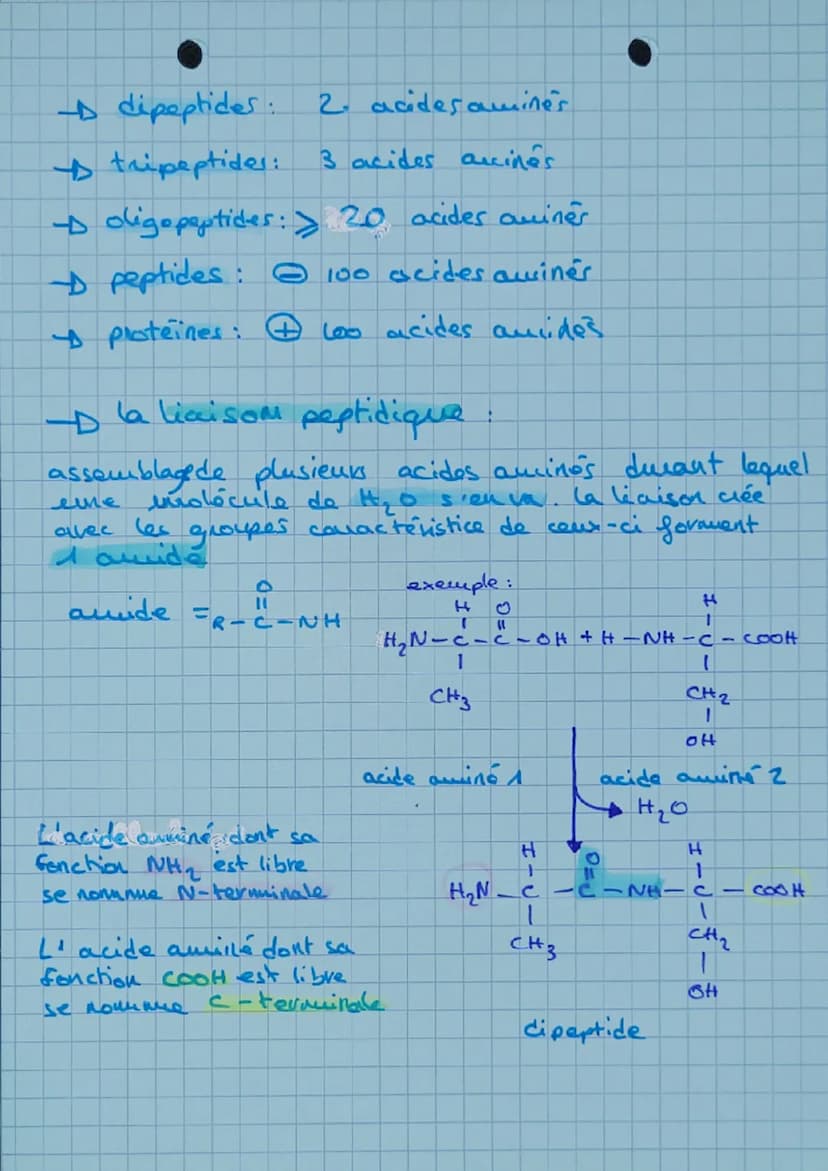 → dipeptides : 2. acides aminés
→ tripeptides : 3 acides aminés
→ oligopeptides : ⩾ 20 acides aminés
→ peptides : ⊖ 100 acides aminés
→ protéines : ⊕ 100 acides amidés
→ la liaison peptidique :
assemblage de plusieurs acides aminés durant lequel
une molécule de H₂O s'en va. la liaison créé
avec les groupes caractéristica de ceux-ci forment
1 amide
exemple :
amide = R-C-NH
O
H O
H₂N-C-C-OH + H-NH-C-COOH
H
CH₃
CH₂
OH
acide aminé 1
acide aminé 2
H₂O
L'acide aminé dont sa
fonction NH₂ est libre
se nomme N-terminale
H O H
H₂N-C-C-NH-C-COOH
CH₃
CH₂
OH
L'acide aminé dont sa
fonction COOH est libre
se nomme C-terminale
dipeptide